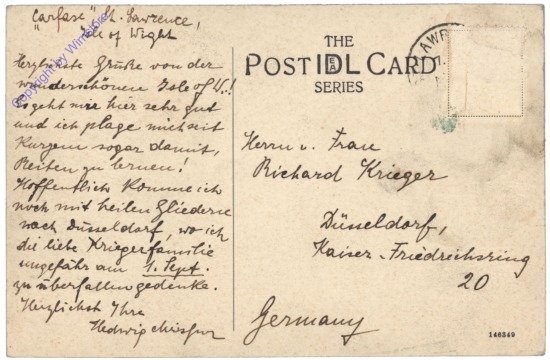 "Carfase" St. Lawrence,
Isle of Wight
Herzlichste Grüße von der
wunderschönen Isle of W.!
Es geht mir hier sehr gut
und ich plage mich seit
Kurzem sogar damit,
Reiten zu lernen!
Hoffentlich komme ich
noch mit heilen Gliedern
nach Düsseldorf, wo ich
die liebe Kriegerfamilie
ungefähr am 1. Sept.
zu überfallen gedenke.
Herzlichst Ihre
Hedwig
THE
POST IDEAL CARD
SERIES
Herrn u. Frau
Richard Krieger
Düsseldorf,
Kaiser-Friedrichsring
20
Germany
146349
Copyright by